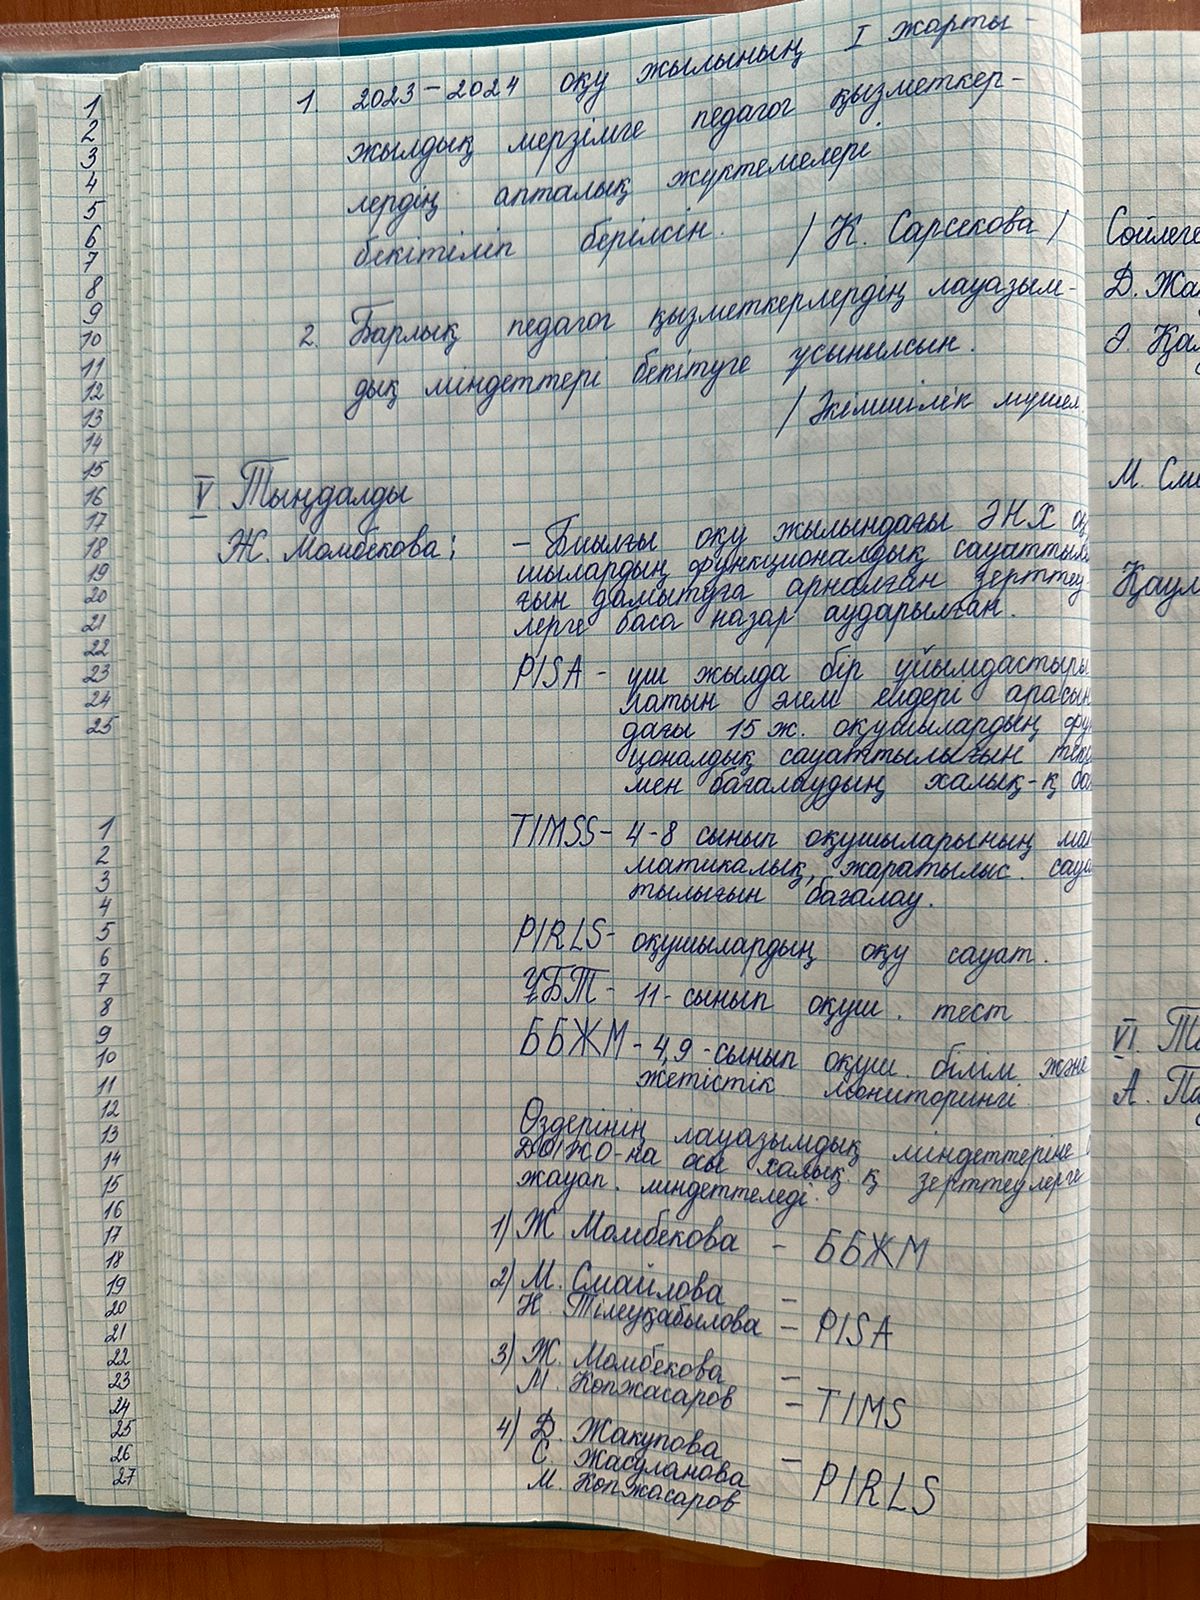 1 2023-2024 оқу жылының I жарты-
жылдық мерзімге педагог қызметкер-
лердің апталық жүктемелері
бекітіліп берілсін. / К. Сарсекова /
2. Барлық педагог қызметкерлердің лауазым-
дық міндеттері бекітуге ұсынылсын.
/ Әкімшілік мүшел
V Тыңдалды
Ж. Момбекова: - Биылғы оқу жылындағы ӘНХ оқу
шылардың функционалдық сауаттылы
ғын дамытуға арналған зерттеу
лерге баса назар аударылған.
PISA - үш жылда бір ұйымдастыры
латын әлем елдері арасын
дағы 15 ж. оқушылардың фун
ционалдық сауаттылығын
мен бағалаудың халық-қ ба
TIMSS- 4-8 сынып оқушыларының мате
матикалық, жаратылыс. сауат
тылығын бағалау.
PIRLS- оқушылардың оқу сауат.
ҰБТ- 11-сынып оқуш. тест
ББЖМ - 4,9-сынып оқуш. білім. және
жетістік мониторингі
Өздерінің лауазымдық міндеттеріне
ДОІЖО-на осы халық. қ зерттеулерге
жауап. міндеттеледі.
1) Ж Момбекова - ББЖМ
2) М. Смайлова -
Н. Тілеуқабылова - PISA
3) Ж. Момбекова -
М. Копжасаров - TIMS
4) Д. Жакупова -
С. Жасуланова
М. Копжасаров PIRLS
1
2
3
4
5
6
7
8
9
10
11
12
13
14
15
16
17
18
19
20
21
22
23
24
25
1
2
3
4
5
6
7
8
9
10
11
12
13
14
15
16
17
18
19
20
21
22
23
24
25
26
27
Сөйлеге
Д. Жа
Ә. Қал
М. Сма
Қаул
VI. Ты
А. Па